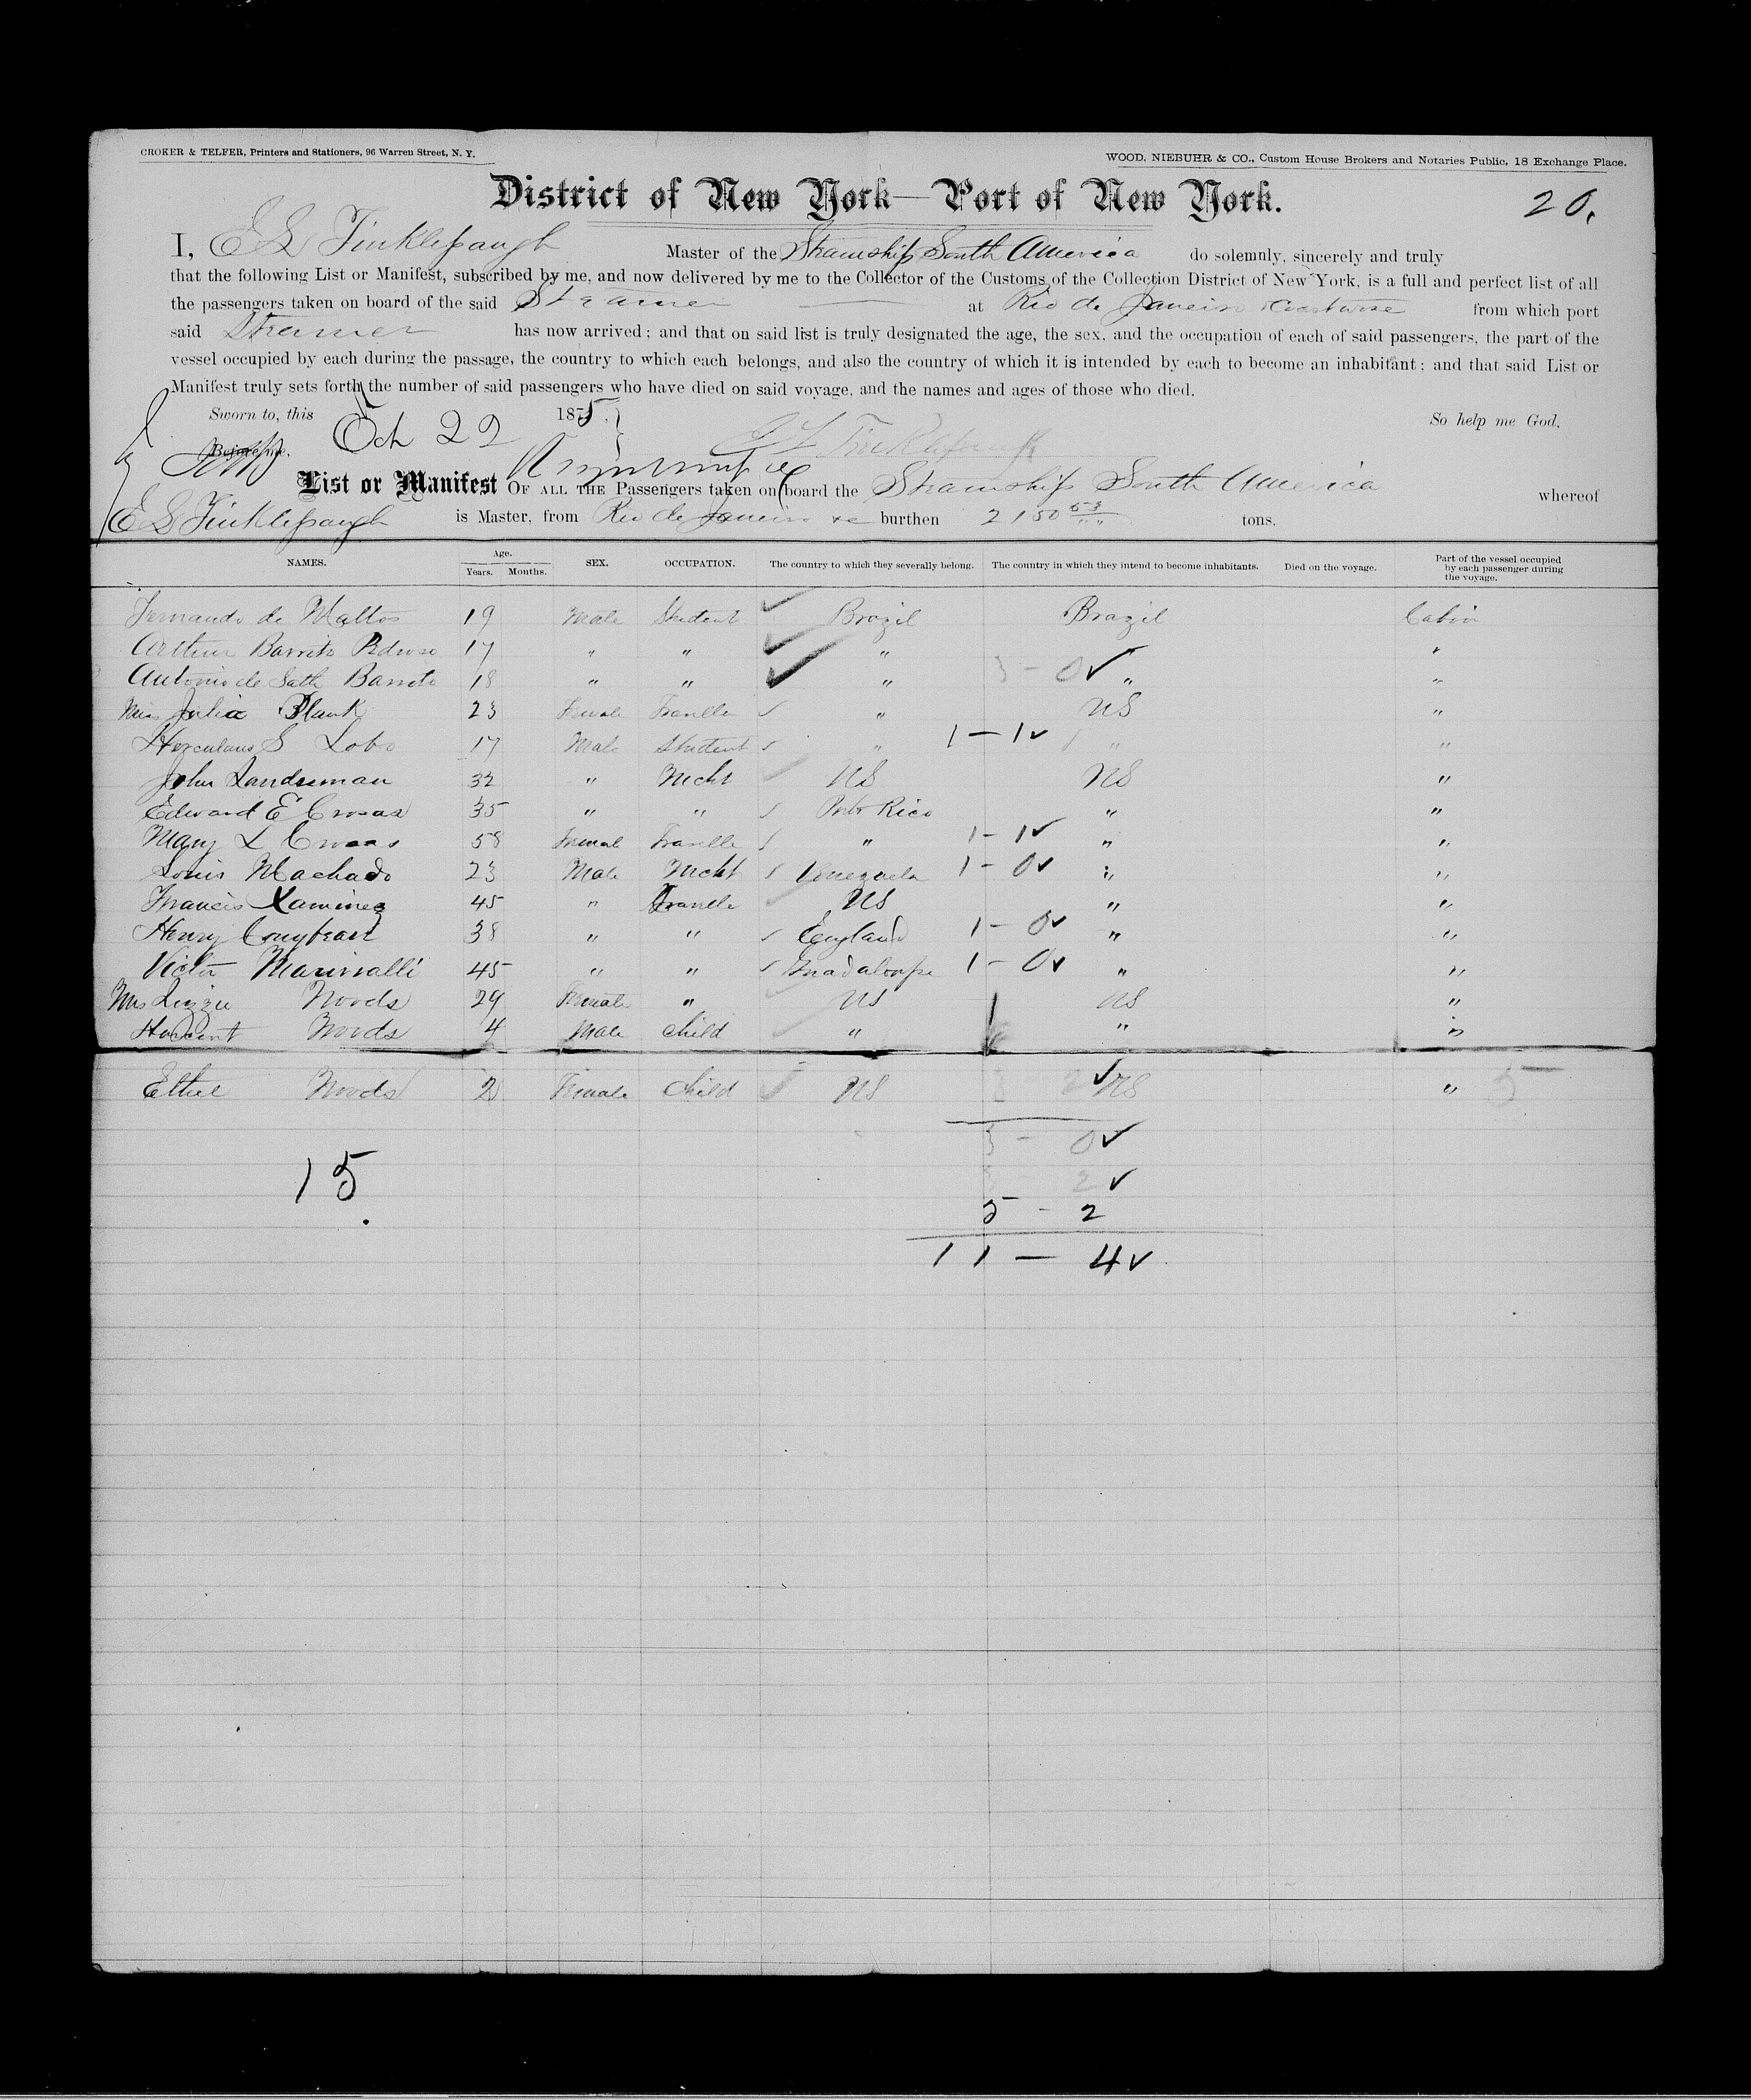 CROKER & TELFER, Printers and Stationers, 96 Warren Street, N. Y.
WOOD, NIEBUHR & CO., Custom House Brokers and Notaries Public, 18 Exchange Place.
District of New York—Port of New York.
20.
I, E L Tinklepaugh Master of the Steamship South America do solemnly, sincerely and truly
that the following List or Manifest, subscribed by me, and now delivered by me to the Collector of the Customs of the Collection District of New York, is a full and perfect list of all
the passengers taken on board of the said Steamer at Rio de Janeiro from which port
said Steamer has now arrived; and that on said list is truly designated the age, the sex, and the occupation of each of said passengers, the part of the
vessel occupied by each during the passage, the country to which each belongs, and also the country of which it is intended by each to become an inhabitant; and that said List or
Manifest truly sets forth the number of said passengers who have died on said voyage, and the names and ages of those who died.
Sworn to, this Oct 22 1875. So help me God.
Before me, E L Tinklepaugh
List or Manifest OF ALL THE Passengers taken on board the Steamship South America whereof
E L Tinklepaugh is Master, from Rio de Janeiro &c burthen 2150 53 tons.
NAMES. Age. Years. Months. SEX. OCCUPATION. The country to which they severally belong. The country in which they intend to become inhabitants. Died on the voyage. Part of the vessel occupied by each passenger during the voyage.
Fernando de Mattos 19 Male Student Brazil Brazil Cabin
Arthur Barreto Pedroso 17 " " " "
Antonio de Barreto 18 " " " 3 - 0 " "
Miss Julia Blank 23 Female Traveller " US "
Herculano S Lobo 17 Male Student " 1 - 1 " "
John Landsman 32 " Mcht US US "
Edward E Crosas 35 " " Porto Rico " "
Mary L Crosas 58 Female Traveller " 1 - 1 " "
Louis Machado 23 Male Mcht Venezuela 1 - 0 " "
Francis Xaminez 45 " Traveller US " "
Henry 38 " " England 1 - 0 " "
Victor 45 " " Guadaloupe 1 - 0 " "
Mrs Lizzie Woods 29 Female " US US "
Woods 4 Male Child " " "
Ethel Woods 2 Female Child US 2 US " 5
3 - 0
15 2
5 - 2
11 - 4